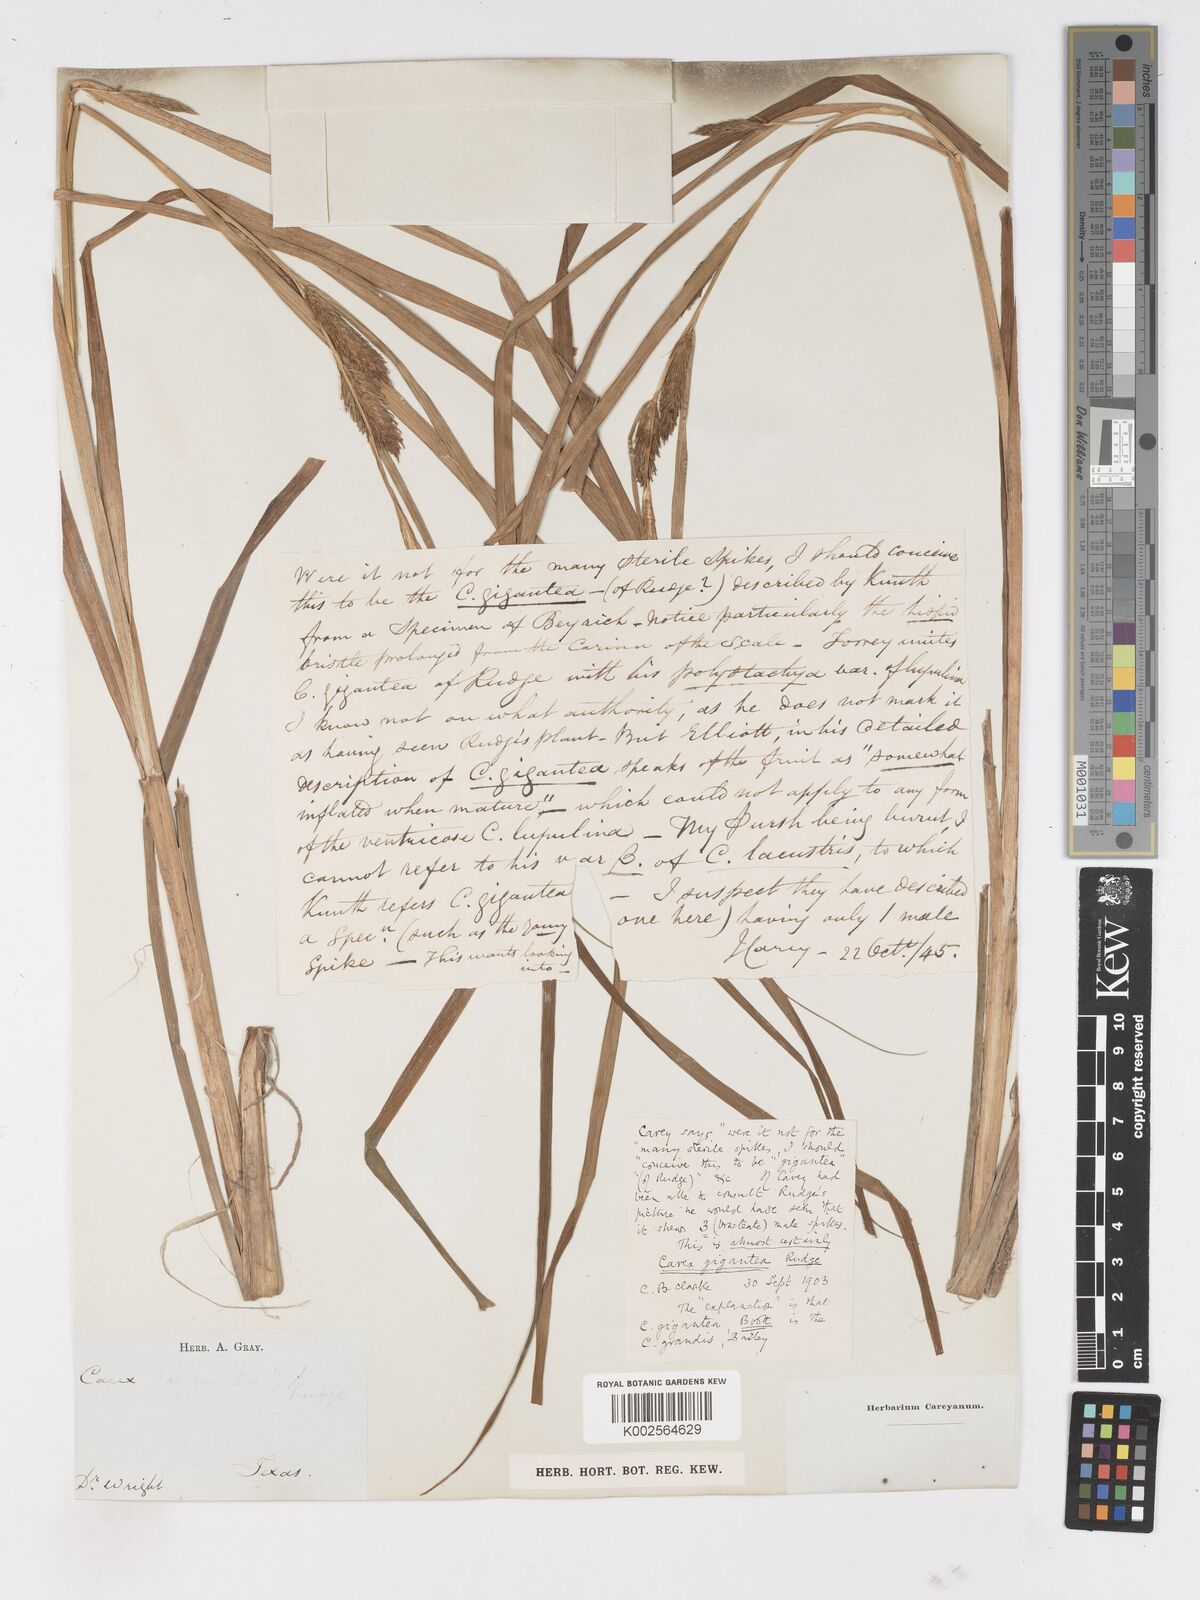 Were it not for the many sterile spikes, I should conceive
this to be the C. gigantea - (of Rudge?) described by Kunth
from a specimen of Beyrich - notice particularly the hispid
bristle prolonged from the Carina of the Scale - Torrey unites
C. gigantea of Rudge with his polystachya var. of lupulina
I know not on what authority, as he does not mark it
as having seen Rudge's plant - But Elliott, in his detailed
description of C. gigantea speaks of the fruit as "somewhat
inflated when mature" - which could not apply to any form
of the ventricose C. lupulina - My Pursh being burnt, I
cannot refer to his var β. of C. lacustris, to which
Kunth refers C. gigantea - I suspect they have described
a specn (such as the one here) having only 1 male
spike - This wants looking
into -
J Carey - 22 Octr./45.
Carey says, "were it not for the
"many sterile spikes, I should
"conceive this to be "gigantea"
"(of Rudge)" &c If Carey had
been able to consult Rudge's
picture he would have seen that
it shews 3 (bracteate) male spikes.
This is almost certainly
Carex gigantea Rudge
C. B Clarke 30 Sept 1903
The "explanation" is that
C. gigantea Boott is the
C. grandis, Bailey
HERB. A. GRAY.
Carex gigantea Rudge
Texas.
Dr. Wright
ROYAL BOTANIC GARDENS KEW
K002564629
HERB. HORT. BOT. REG. KEW.
Herbarium Careyanum.
inches
centimeters
Don Williams
M001031
Royal Botanic Gardens
Kew
0 1 2 3 4 5 6 7 8 9 10
cm
copyright reserved